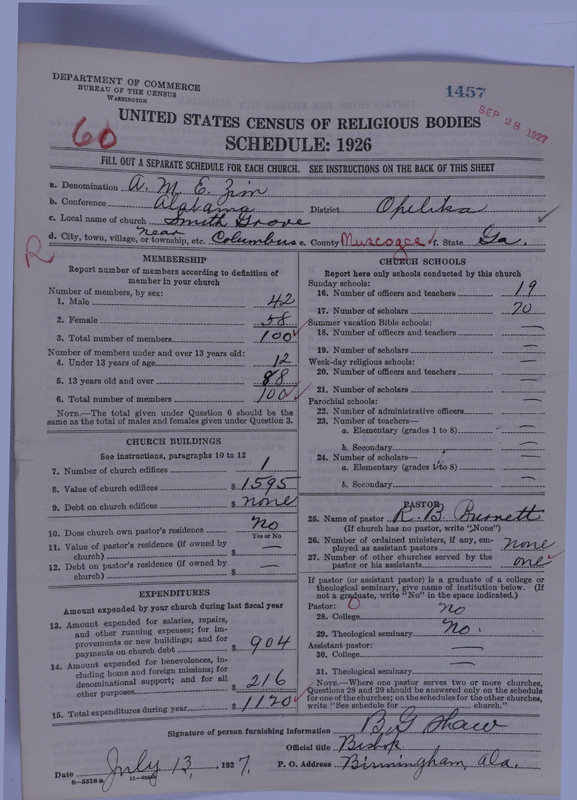 DEPARTMENT OF COMMERCE
BUREAU OF THE CENSUS
WASHINGTON
1457
SEP 28 1927
60
UNITED STATES CENSUS OF RELIGIOUS BODIES
SCHEDULE: 1926
FILL OUT A SEPARATE SCHEDULE FOR EACH CHURCH. SEE INSTRUCTIONS ON THE BACK OF THIS SHEET
a. Denomination A. M. E. Zion
b. Conference Alabama District Opelika
c. Local name of church Smith Grove
d. City, town, village, or township, etc. near Columbus e. County Muscogee f. State Ga.
R
MEMBERSHIP
Report number of members according to definition of
member in your church
Number of members, by sex:
1. Male 42
2. Female 58
3. Total number of members 100
Number of members under and over 13 years old:
4. Under 13 years of age 12
5. 13 years old and over 88
6. Total number of members 100
NOTE.—The total given under Question 6 should be
same as the total of males and females given under Question 3.
CHURCH BUILDINGS
See instructions, paragraphs 10 to 12
7. Number of church edifices 1
8. Value of church edifices $ 1595
9. Debt on church edifices $ none
10. Does church own pastor's residence? no
Yes or No
11. Value of pastor's residence (if owned by
church) $ —
12. Debt on pastor's residence (if owned by
church) $ —
EXPENDITURES
Amount expended by your church during last fiscal year
13. Amount expended for salaries, repairs,
and other running expenses; for im-
provements or new buildings; and for
payments on church debt $ 904
14. Amount expended for benevolences, in-
cluding home and foreign missions; for
denominational support; and for all
other purposes $ 216
15. Total expenditures during year $ 1120
CHURCH SCHOOLS
Report here only schools conducted by this church
Sunday schools:
16. Number of officers and teachers 19
17. Number of scholars 70
Summer vacation Bible schools:
18. Number of officers and teachers —
19. Number of scholars —
Week-day religious schools:
20. Number of officers and teachers —
21. Number of scholars —
Parochial schools:
22. Number of administrative officers —
23. Number of teachers—
a. Elementary (grades 1 to 8) —
b. Secondary —
24. Number of scholars—
a. Elementary (grades 1 to 8) —
b. Secondary —
PASTOR
25. Name of pastor R. B. Burnett
(If church has no pastor, write "None")
26. Number of ordained ministers, if any, em-
ployed as assistant pastors none
27. Number of other churches served by the
pastor or his assistants one
If pastor (or assistant pastor) is a graduate of a college or
theological seminary, give name of institution below. (If
not a graduate, write "No" in the space indicated.)
Pastor: 0
28. College no
29. Theological seminary no.
Assistant pastor:
30. College —
31. Theological seminary —
NOTE.—Where one pastor serves two or more churches,
Questions 28 and 29 should be answered only on the schedule
for one of the churches; on the schedules for the other churches,
write "See schedule for church."
Signature of person furnishing information B G Shaw
Official title Bishop
Date July 13, 1927. P. O. Address Birmingham, Ala.